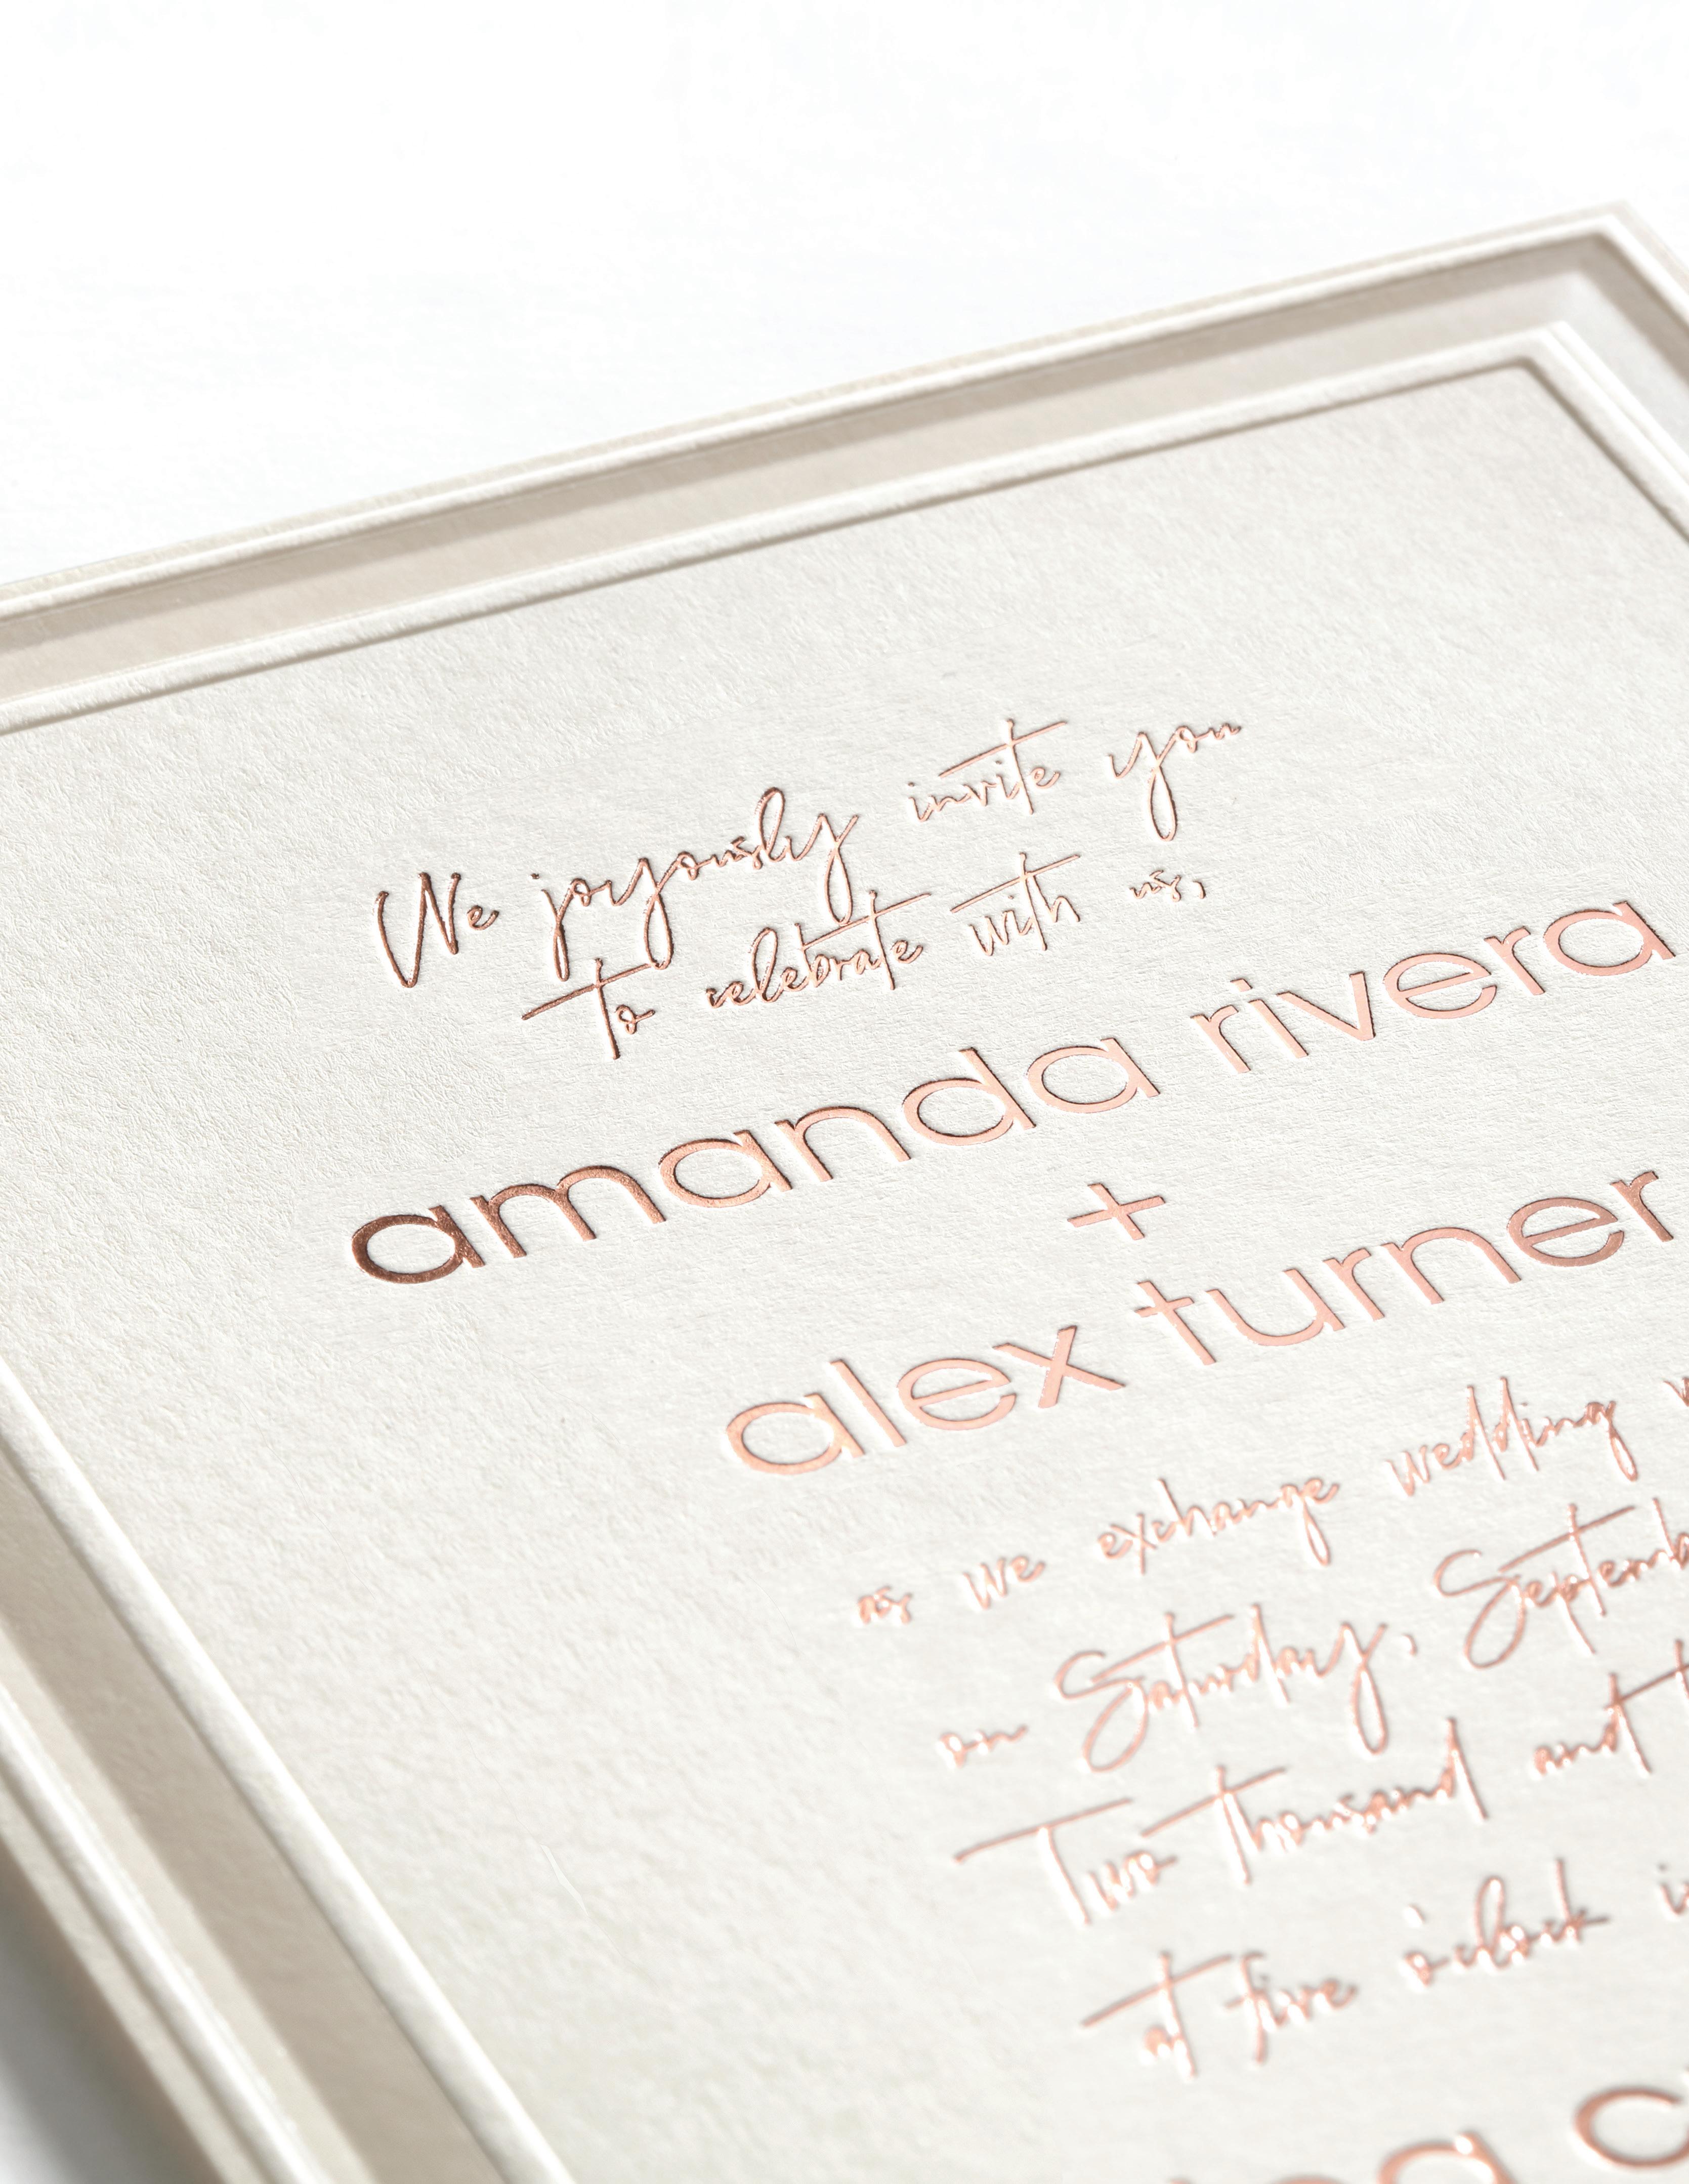 We joyously invite you
to celebrate with us,
amanda rivera
+
alex turner
as we exchange wedding
on Saturday, Septemb
Two thousand and
at five o'clock